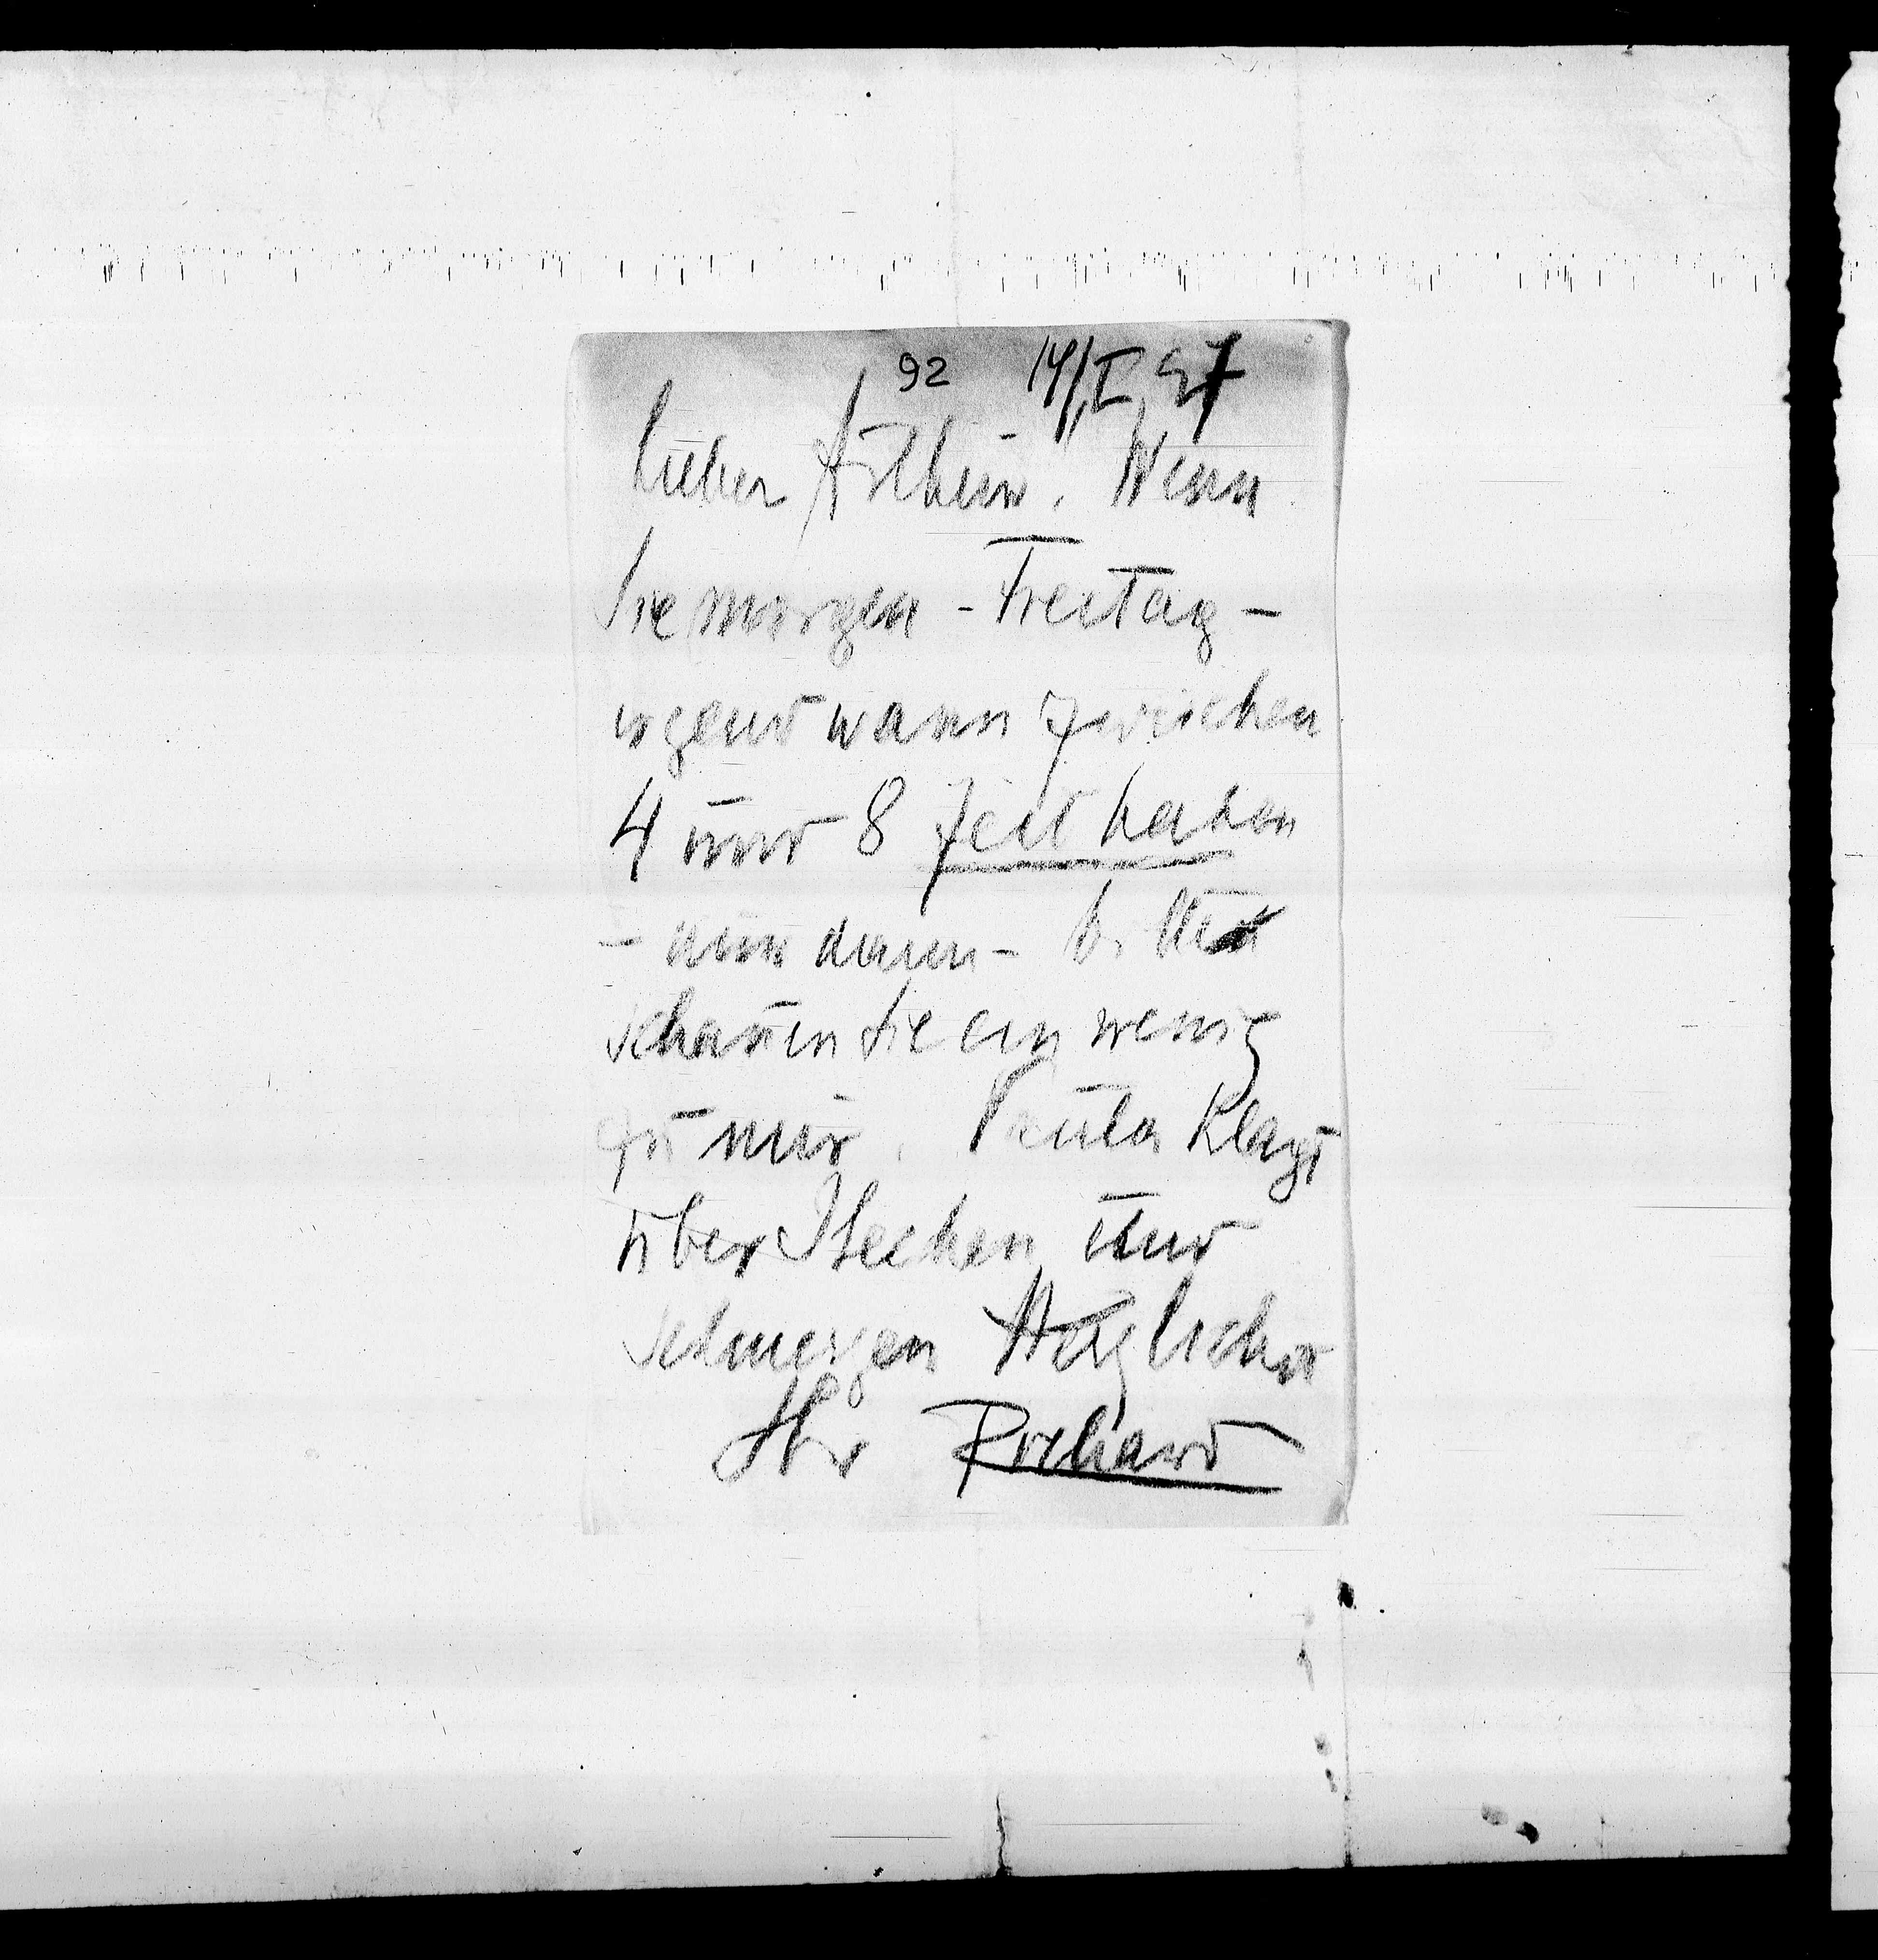 92 14/I 97
Lieber Arthur. Wenn
Sie morgen - Freitag -
irgendwann zwischen
4 und 8 Zeit haben
- nur dann - bitte
schauen Sie ein wenig
zu mir. Paula klagt
über Stechen und
Schmerzen Herzlichst
Ihr Richard